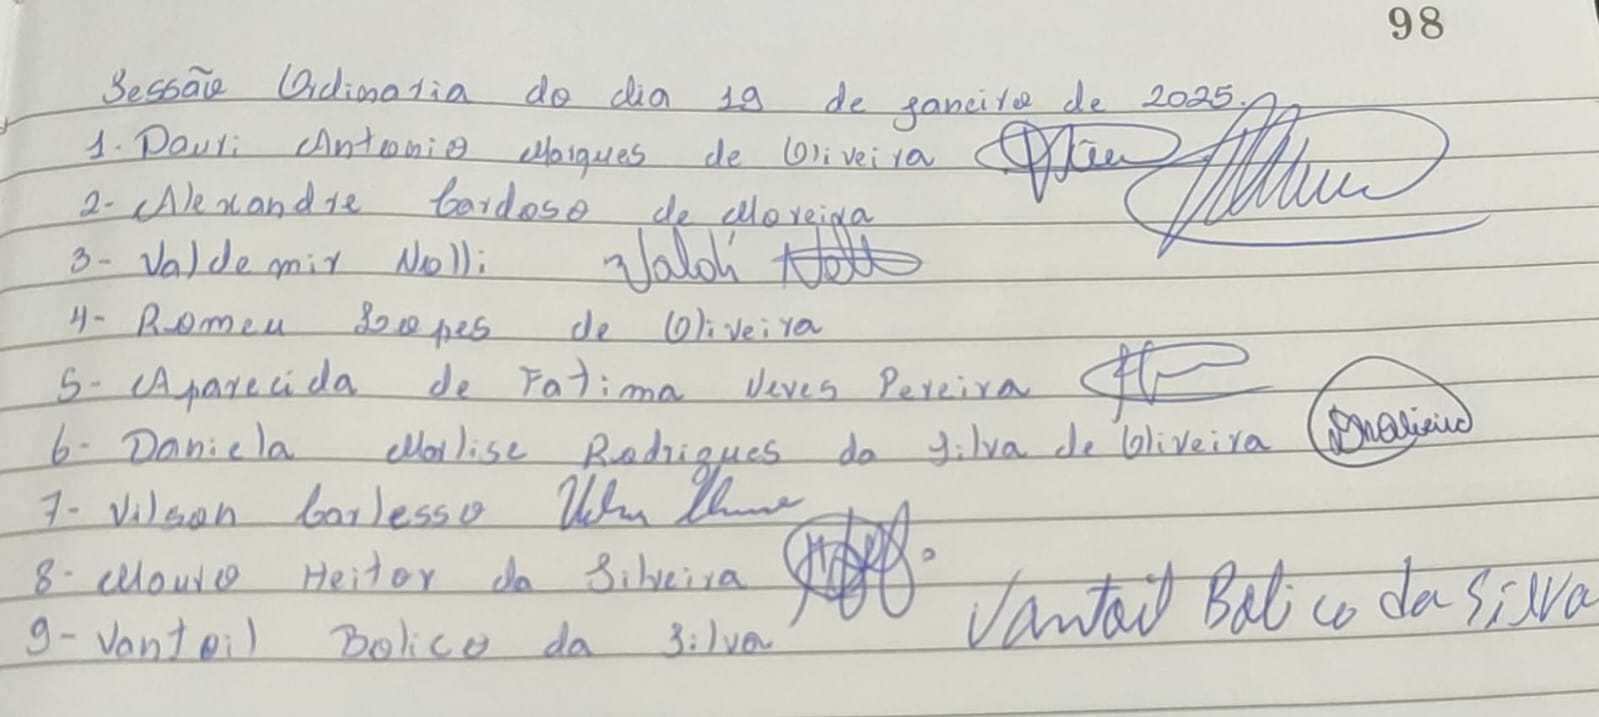 98
Sessão Ordinaria do dia 19 de janeiro de 2025.
1. Davri Antonio Marques de Oliveira
2- Alexandre Cardoso de Moreira
3- Valdemir Nolli
4- Romeu Loopes de Oliveira
5- Aparecida de Fatima Neves Pereira
6- Daniela Marlise Rodrigues da Silva de Oliveira
7- Vilson Carlesso
8- Mauro Heitor da Silveira
9- Vantoil Bolico da Silva Vantoil Bolico da Silva